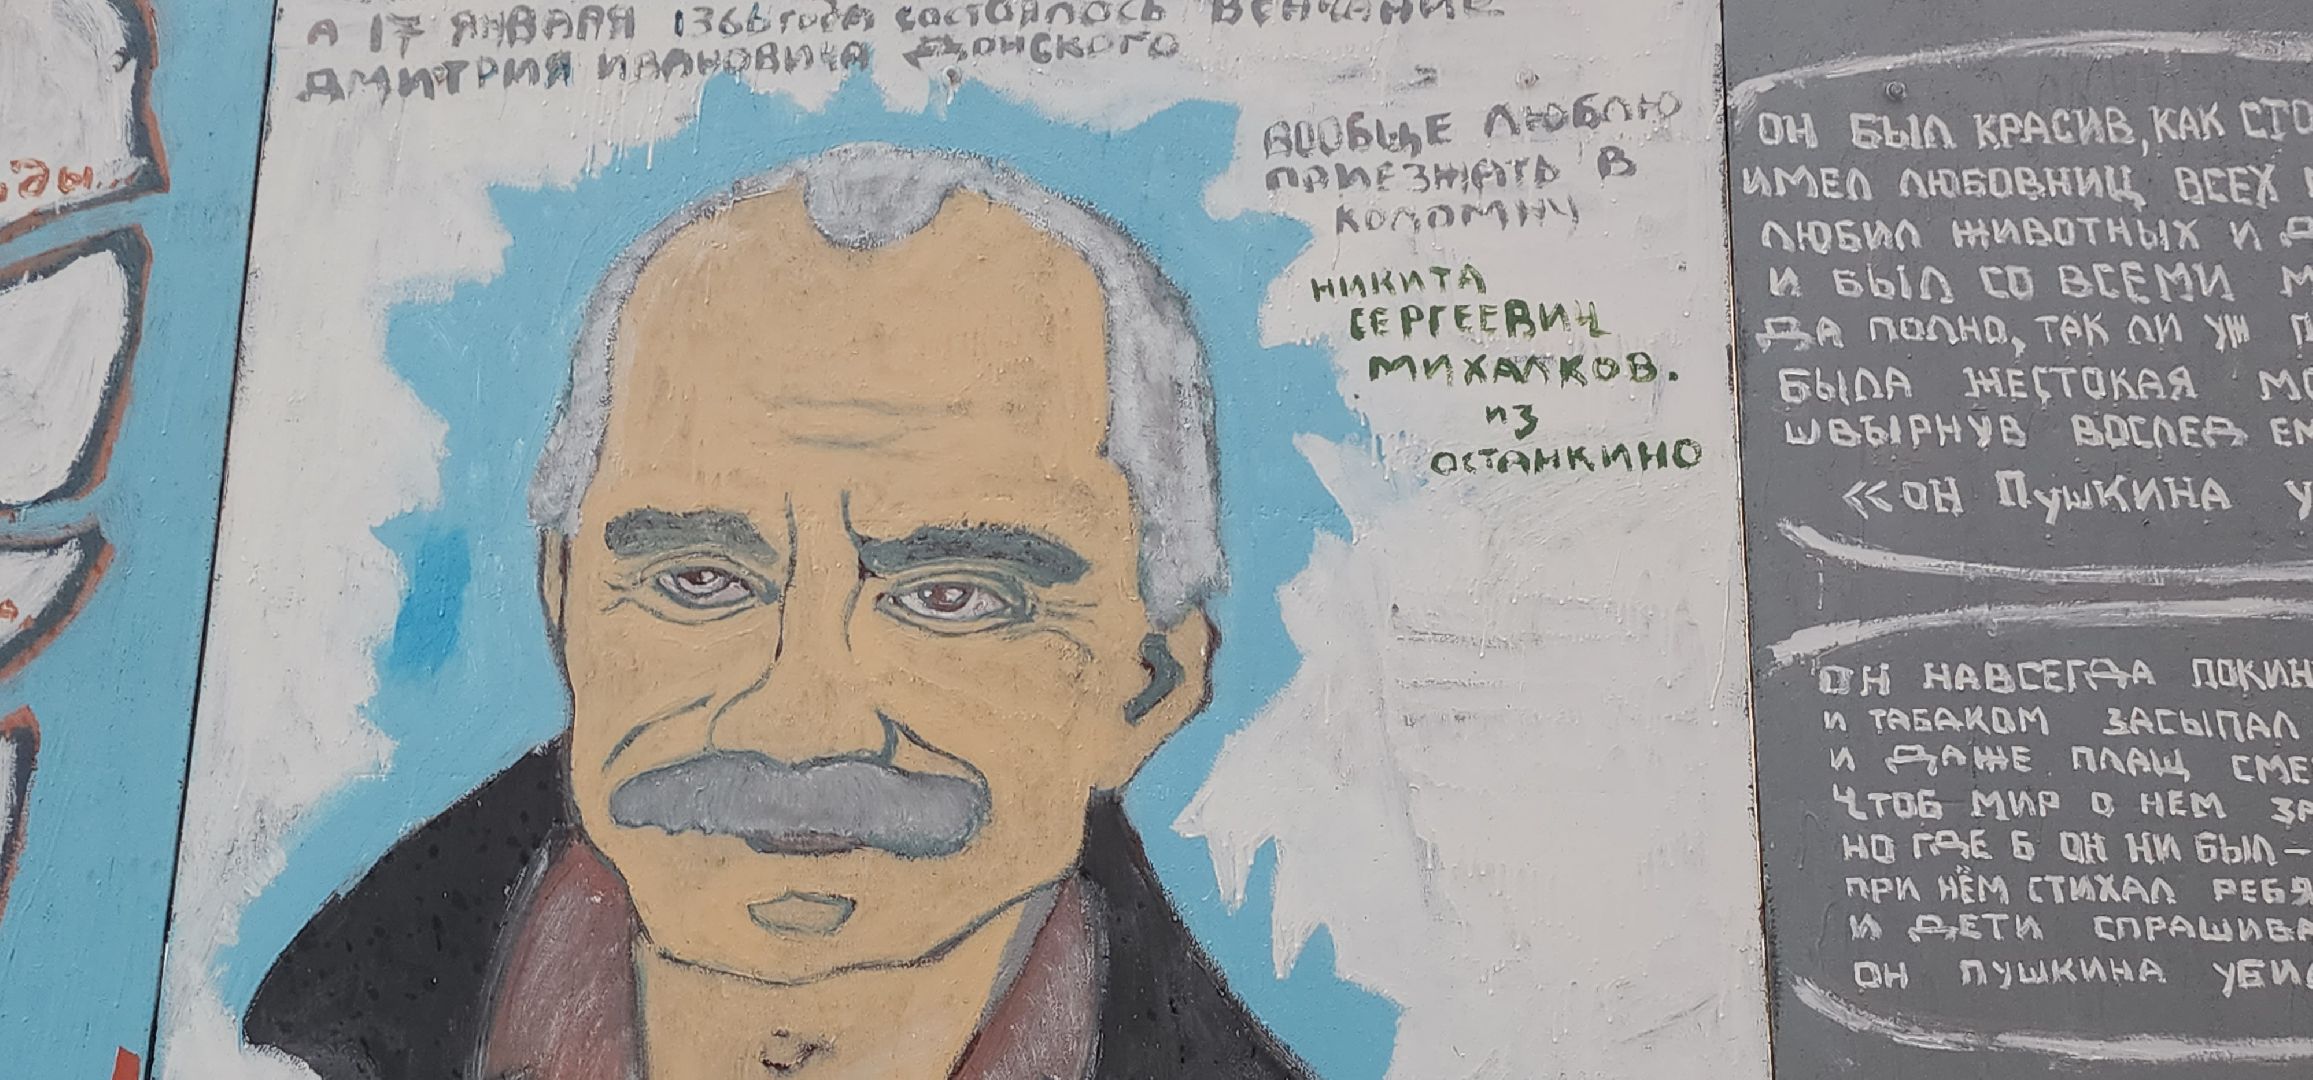 А 17 ЯНВАРЯ 1366 года состоялось ВЕНЧАНИЕ
ДМИТРИЯ ИВАНОВИЧА ДОНСКОГО
ВООБЩЕ ЛЮБЛЮ
ПРИЕЗЖАТЬ В
КОЛОМНУ
НИКИТА
СЕРГЕЕВИЧ
МИХАЛКОВ.
ИЗ
ОСТАНКИНО
ОН БЫЛ КРАСИВ, КАК СТО
ИМЕЛ ЛЮБОВНИЦ ВСЕХ
ЛЮБИЛ ЖИВОТНЫХ И Д
И БЫЛ СО ВСЕМИ М
ДА ПОЛНО, ТАК ЛИ УЖ П
БЫЛА ЖЕСТОКАЯ МО
ШВЫРНУВ ВОСЛЕД ЕМ
«ОН ПУШКИНА У
ОН НАВСЕГДА ПОКИН
И ТАБАКОМ ЗАСЫПАЛ
И ДАЖЕ ПЛАЩ СМЕ
ЧТОБ МИР О НЕМ ЗА
НО ГДЕ Б ОН НИ БЫЛ –
ПРИ НЁМ СТИХАЛ РЕБЯ
И ДЕТИ СПРАШИВА
ОН ПУШКИНА УБИЛ
ды...